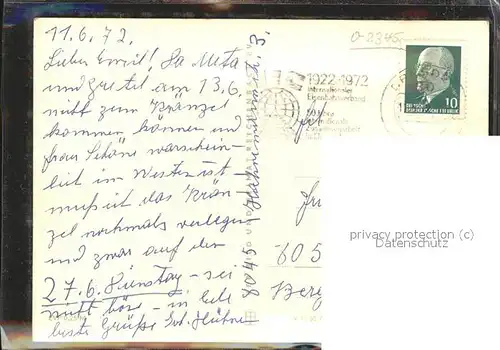 11.6.72.
Lieber Emil! Da Meta
und Gretel am 13.6.
nitt zum Kränzel
kommen können und
Frau Schöne warschein-
lich im Westen ist –
muß ich das Krän-
zel nochmals verlegen
und zwar auf den
27.6. Dienstag – sei
nitt böse – in Eile
beste Grüße
8045
3.
0-2345
1922-1972
Internationaler
Eisenbahnverband
50 Jahre
DEUTSCHE
DEMOKRATISCHE REPUBLIK
10
805
Berg
privacy protection (c)
Datenschutz